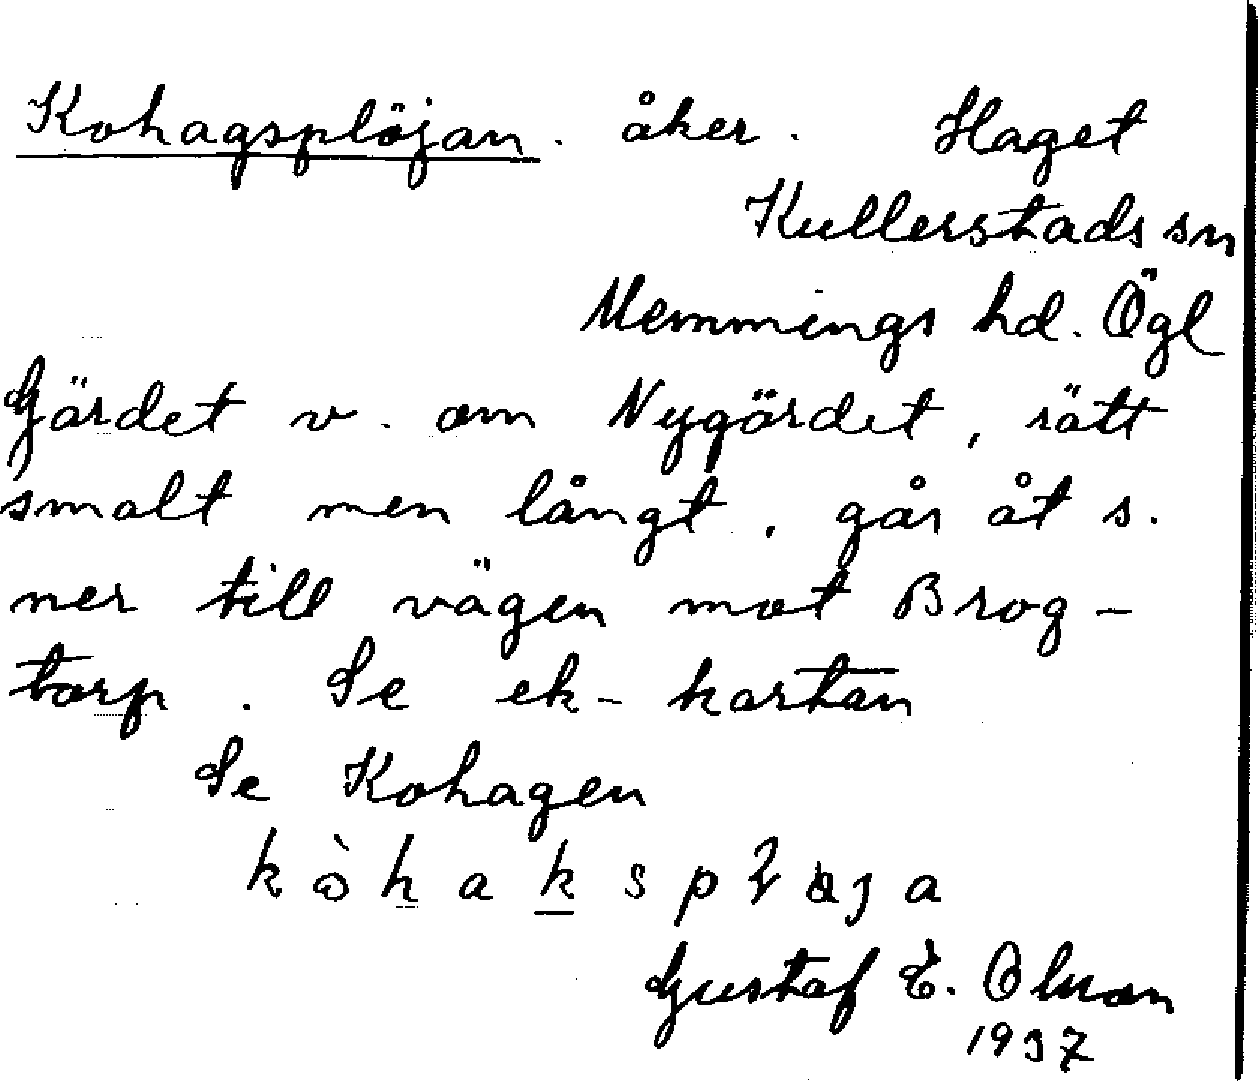 Kohagsplöjan. åker. Haget
Kullerstads sn
Memmings hd. Ögl
Gärdet v. om Nygärdet, rätt
smalt men långt, går åt s.
ner till vägen mot Brog-
torp. Se ek-kartan
Se Kohagen
Gustaf E. Olsson
1937